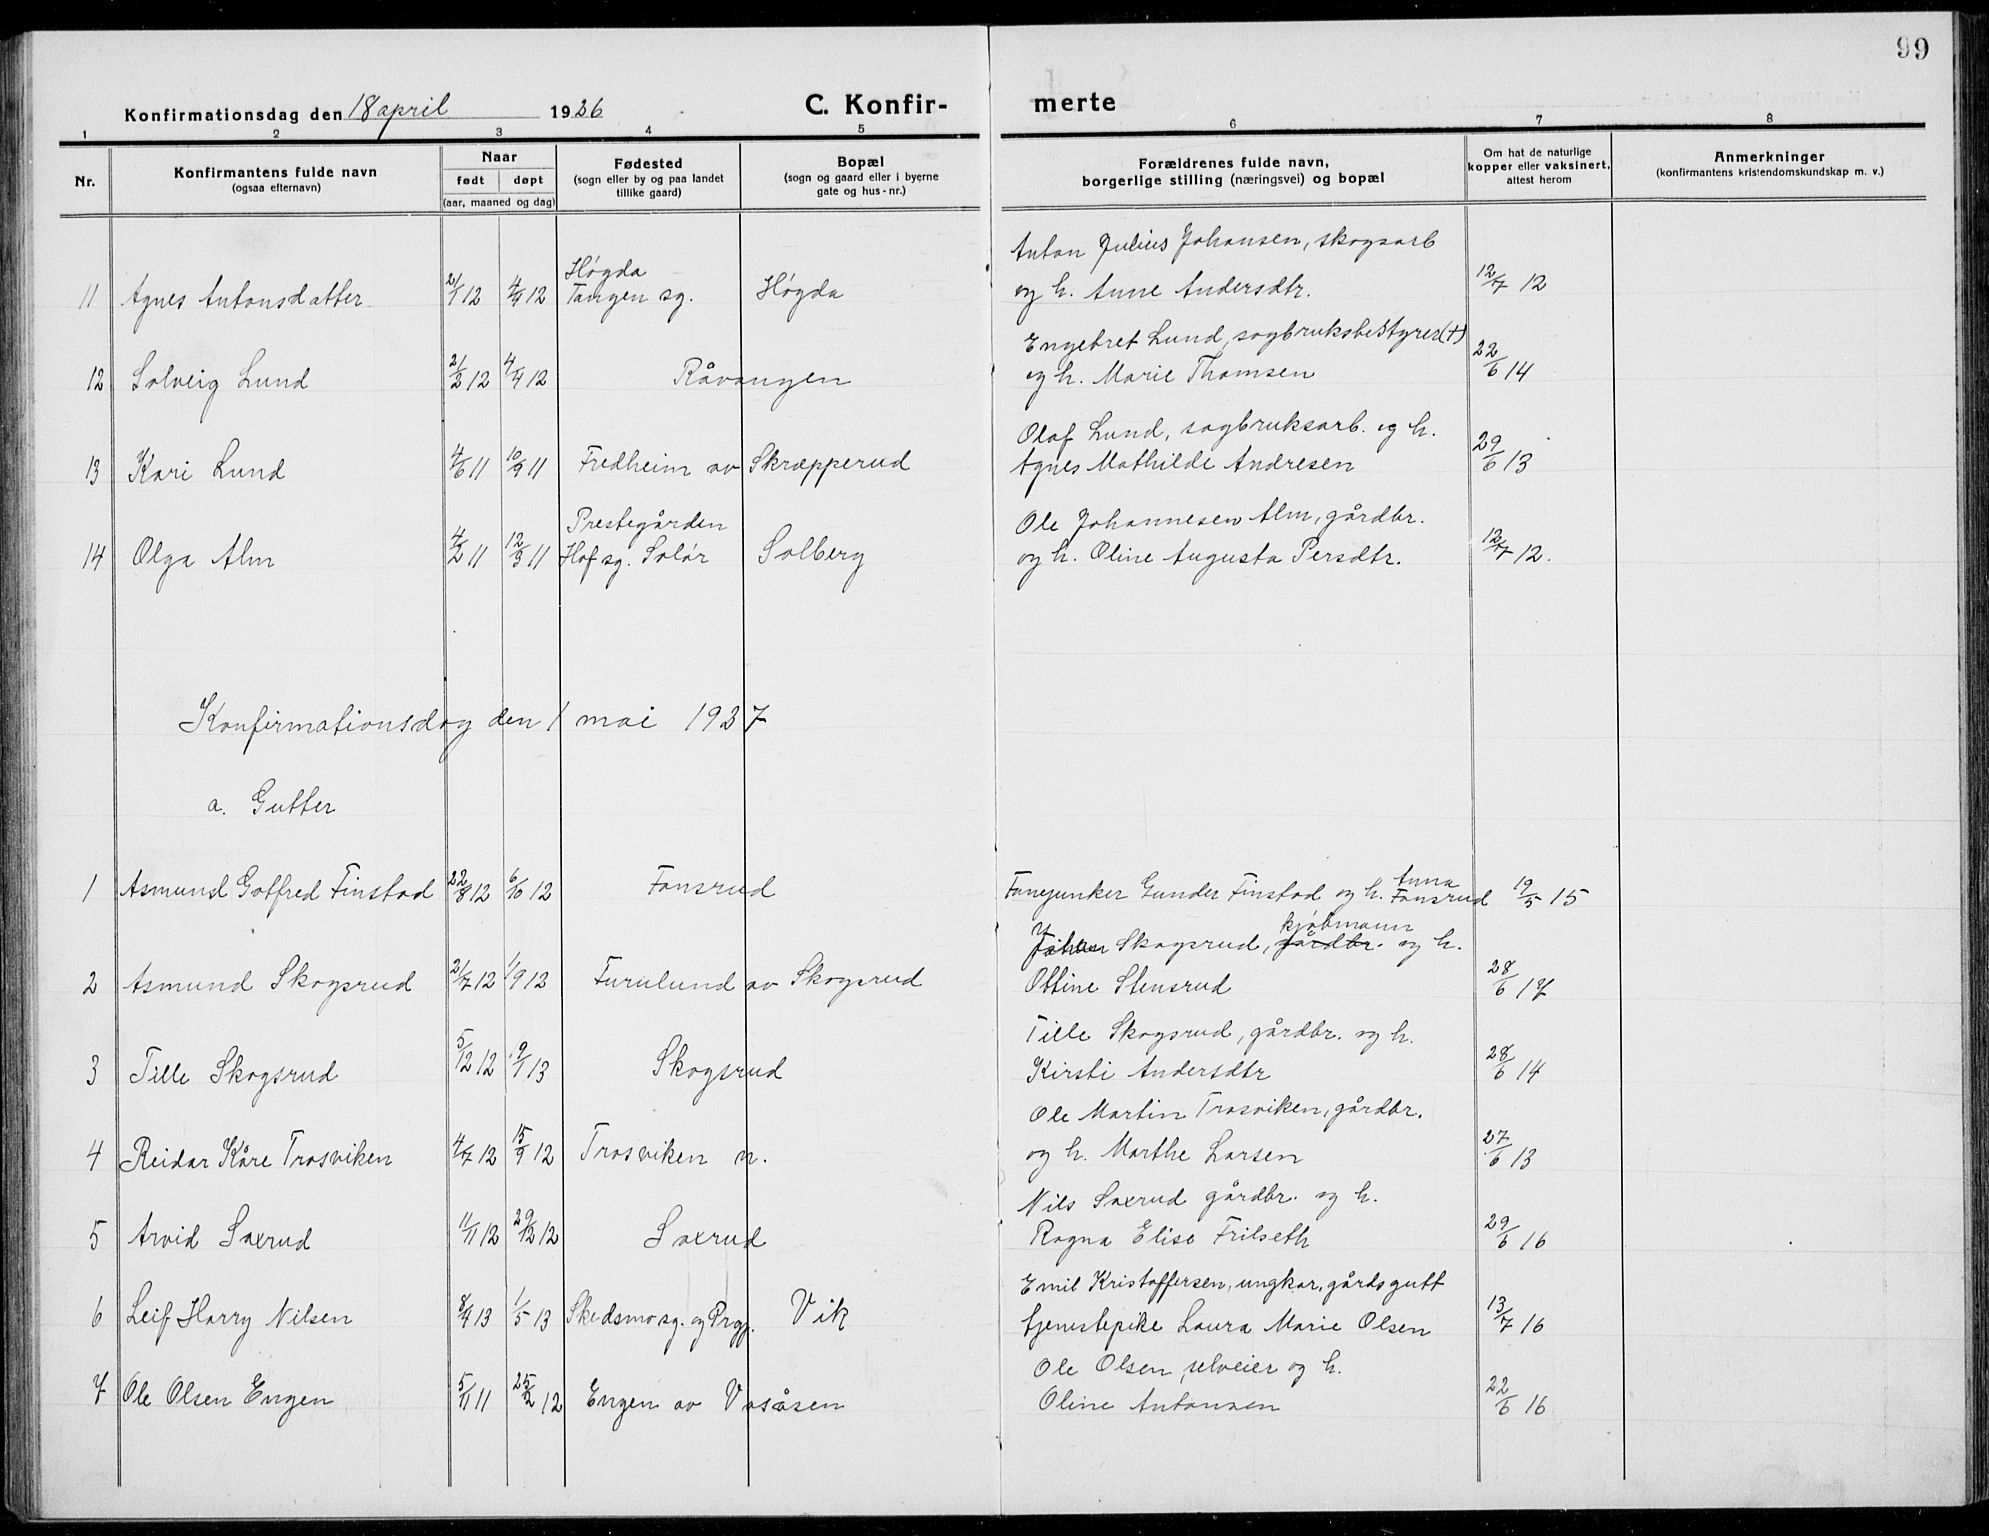 99
Konfirmationsdag den 18 april 1926 C. Konfir- merte
1 2 3 4 5 6 7 8
Nr. Konfirmantens fulde navn (ogsaa efternavn) Naar født døpt (aar, maaned og dag) Fødested (sogn eller by og paa landet tillike gaard) Bopæl (sogn og gaard eller i byerne gate og hus-nr.) Forældrenes fulde navn, borgerlige stilling (næringsvei) og bopæl Om hat de naturlige kopper eller vaksinert, attest herom Anmerkninger (konfirmantens kristendomskundskap m. v.)
Anton Julius Johansen, skogsarb
Høgda
11 Agnes Antonsdatter 2/1 12 4/4 12 Tangen sg. Høgda og h. Anne Andersdtr. 12/7 12
Engebret Lund, sagbruksbestyrer (+)
12 Solveig Lund 2/2 12 4/4 12 Råvangen og h. Marie Thomsen 22/6 14
Olaf Lund, sagbruksarb. og h.
13 Kari Lund 4/6 11 10/9 11 Fredheim av Skræpperud Agnes Mathilde Andresen 29/6 13
Prestegården Ole Johannesen Alm, gårdbr.
14 Olga Alm 4/2 11 12/3 11 Hof sg. Solør Solberg og h. Oline Augusta Persdtr. 12/7 12.
Konfirmationsdag den 1 mai 1927
a. Gutter
Anna
1 Asmund Gotfred Finstad 22/8 12 6/10 12 Fonsrud Fanejunker Gunder Finstad og h. Fonsrud 19/5 15
kjøbmann
Skogsrud, gårdbr. og h.
2 Asmund Skogsrud 2/7 12 1/9 12 Furulund av Skogsrud Ottine Stensrud 28/6 17
Tille Skogsrud, gårdbr. og h.
3 Tille Skogsrud 5/12 12 9/1 13 Skogsrud Kirsti Andersdtr 28/6 14
Ole Martin Trosviken, gårdbr.
4 Reidar Kåre Trosviken 4/7 12 15/9 12 Trosviken n. og h. Marthe Larsen 27/6 13
Nils Saxrud gårdbr. og h.
5 Arvid Saxrud 11/11 12 29/12 12 Saxrud Ragna Elise Frilseth 29/6 16
Emil Kristoffersen, ungkar, gårdsgutt
6 Leif Harry Nilsen 8/4 13 1/5 13 Skedsmo sg. og Prgj. Vik tjenestepike Laura Marie Olsen 13/7 16
Ole Olsen, selveier og h.
7 Ole Olsen Engen 5/11 11 25/2 12 Engen av Vasåsen Oline Antonsen 22/6 16